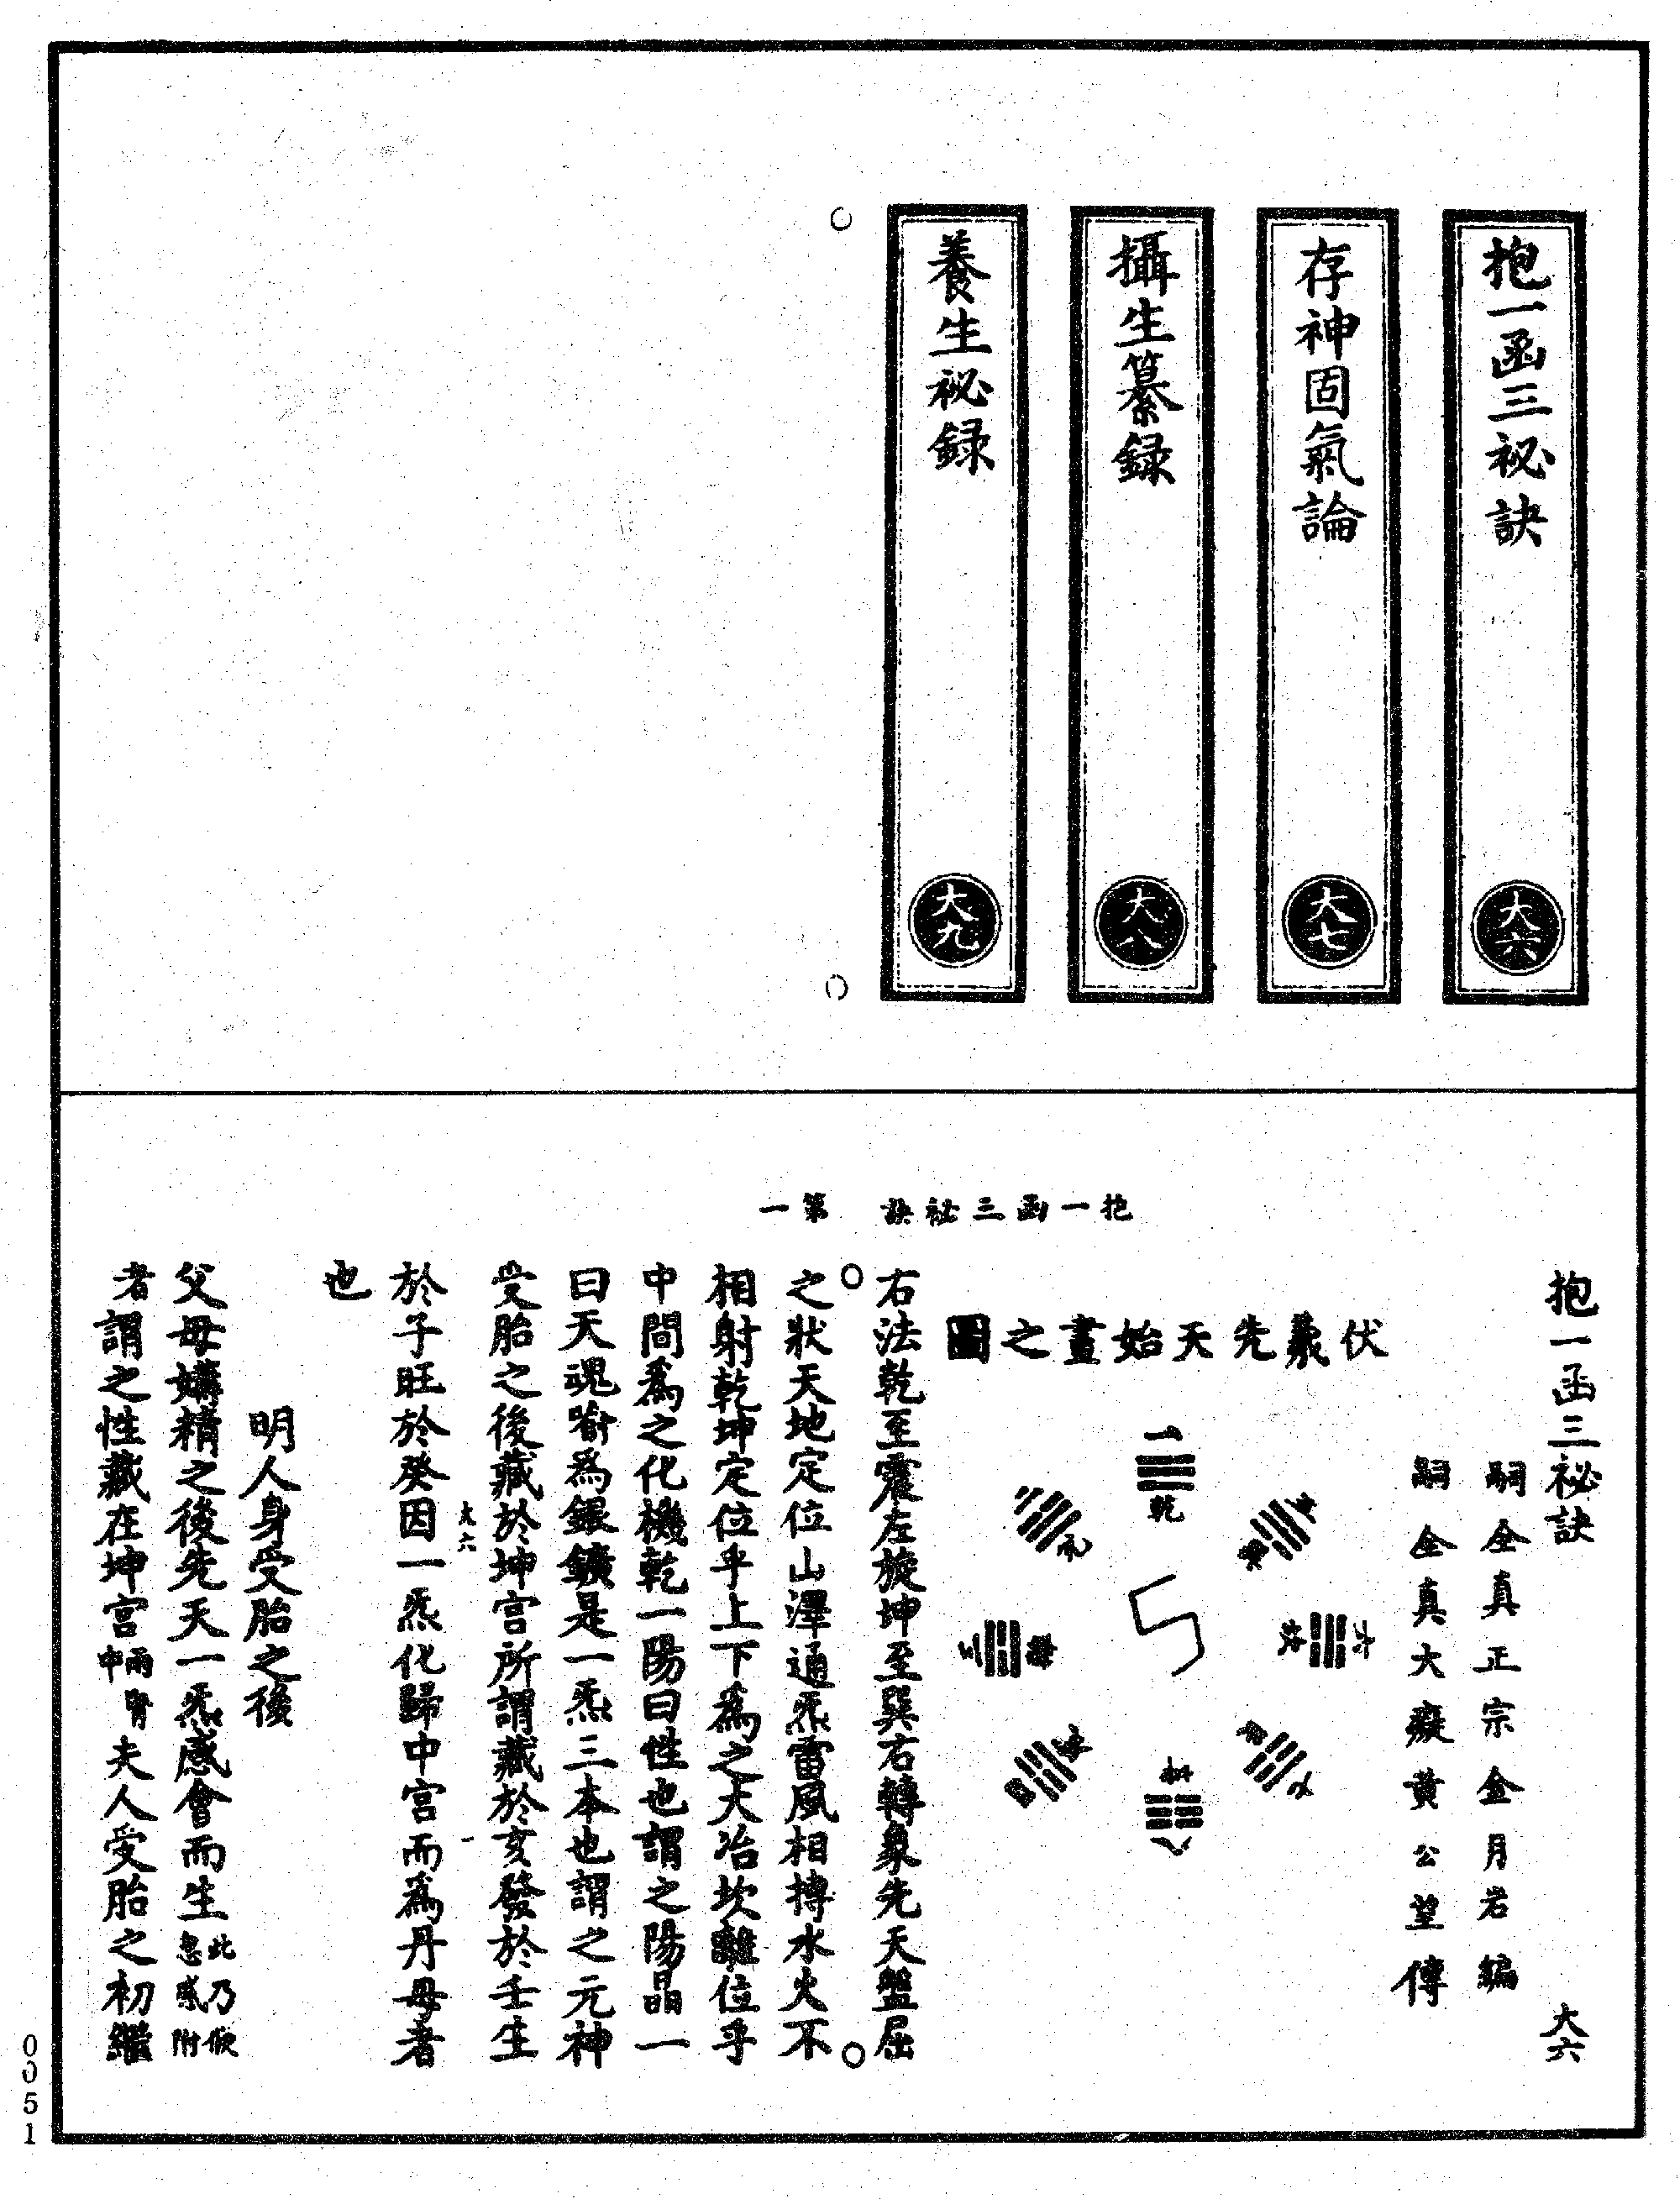 抱一函三祕訣
大六
存神固氣論
大七
攝生纂錄
大八
養生祕録
大九
抱一函三祕訣 第一
抱一函三祕訣 大六
嗣全真正宗金月岩編
嗣全真大癡黃公望傳
伏羲先天始畫之圖
一乾
兌
三離
震
坎六
艮七
坤八
右法乾至震左旋坤至巽右轉象先天盤屈
之狀天地定位山澤通炁雷風相搏水火不
相射乾坤定位乎上下為之大冶坎離位乎
中間為之化機乾一陽曰性也謂之陽晶一
曰天魂喻為銀鑛是一炁三本也謂之元神
受胎之後藏於坤宮所謂藏於亥發於壬生
大六 一
於子旺於癸因一炁化歸中宮而為丹母者
也
明人身受胎之後
父母媾精之後先天一炁感會而生此乃倐忽感附
者謂之性藏在坤宮兩腎中夫人受胎之初繼
0051